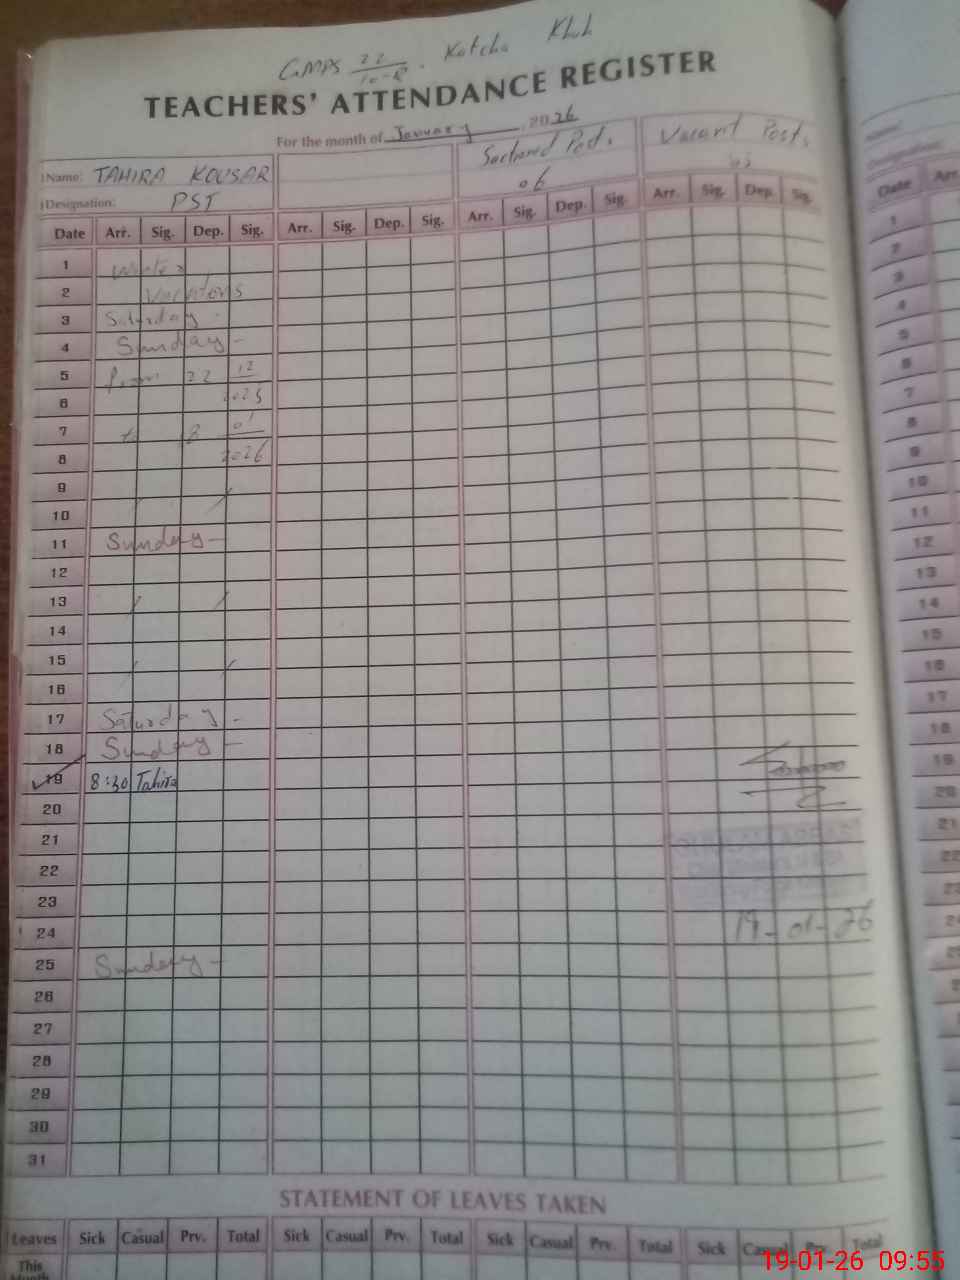 GMPS 22/10-R. Katcha Khuh
TEACHERS' ATTENDANCE REGISTER
For the month of January, 2026
Name: TAHIRA KOUSAR
Designation: PST
Sactioned Posts
06
Vacant Posts
Date Arr. Sig. Dep. Sig. Arr. Sig. Dep. Sig. Arr. Sig. Dep. Sig. Arr. Sig. Dep. Sig.
1 Winter
2 Vacations
3 Saturday
4 Sunday -
5 From 22 12
6 2025
7 to 8 01
8 2026
9
10
11 Sunday -
12
13
14
15
16
17 Saturday -
18 Sunday -
19 8:30 Tahira
20
21
22
23
24 19-01-26
25 Sunday -
26
27
28
29
30
31
STATEMENT OF LEAVES TAKEN
Leaves Sick Casual Prv. Total Sick Casual Prv. Total Sick Casual Prv. Total Sick Casual Prv. Total
This
Month
Date Arr.
1
2
3
4
5
6
7
8
9
10
11
12
13
14
15
16
17
18
19
20
21
22
23
24
19-01-26 09:55